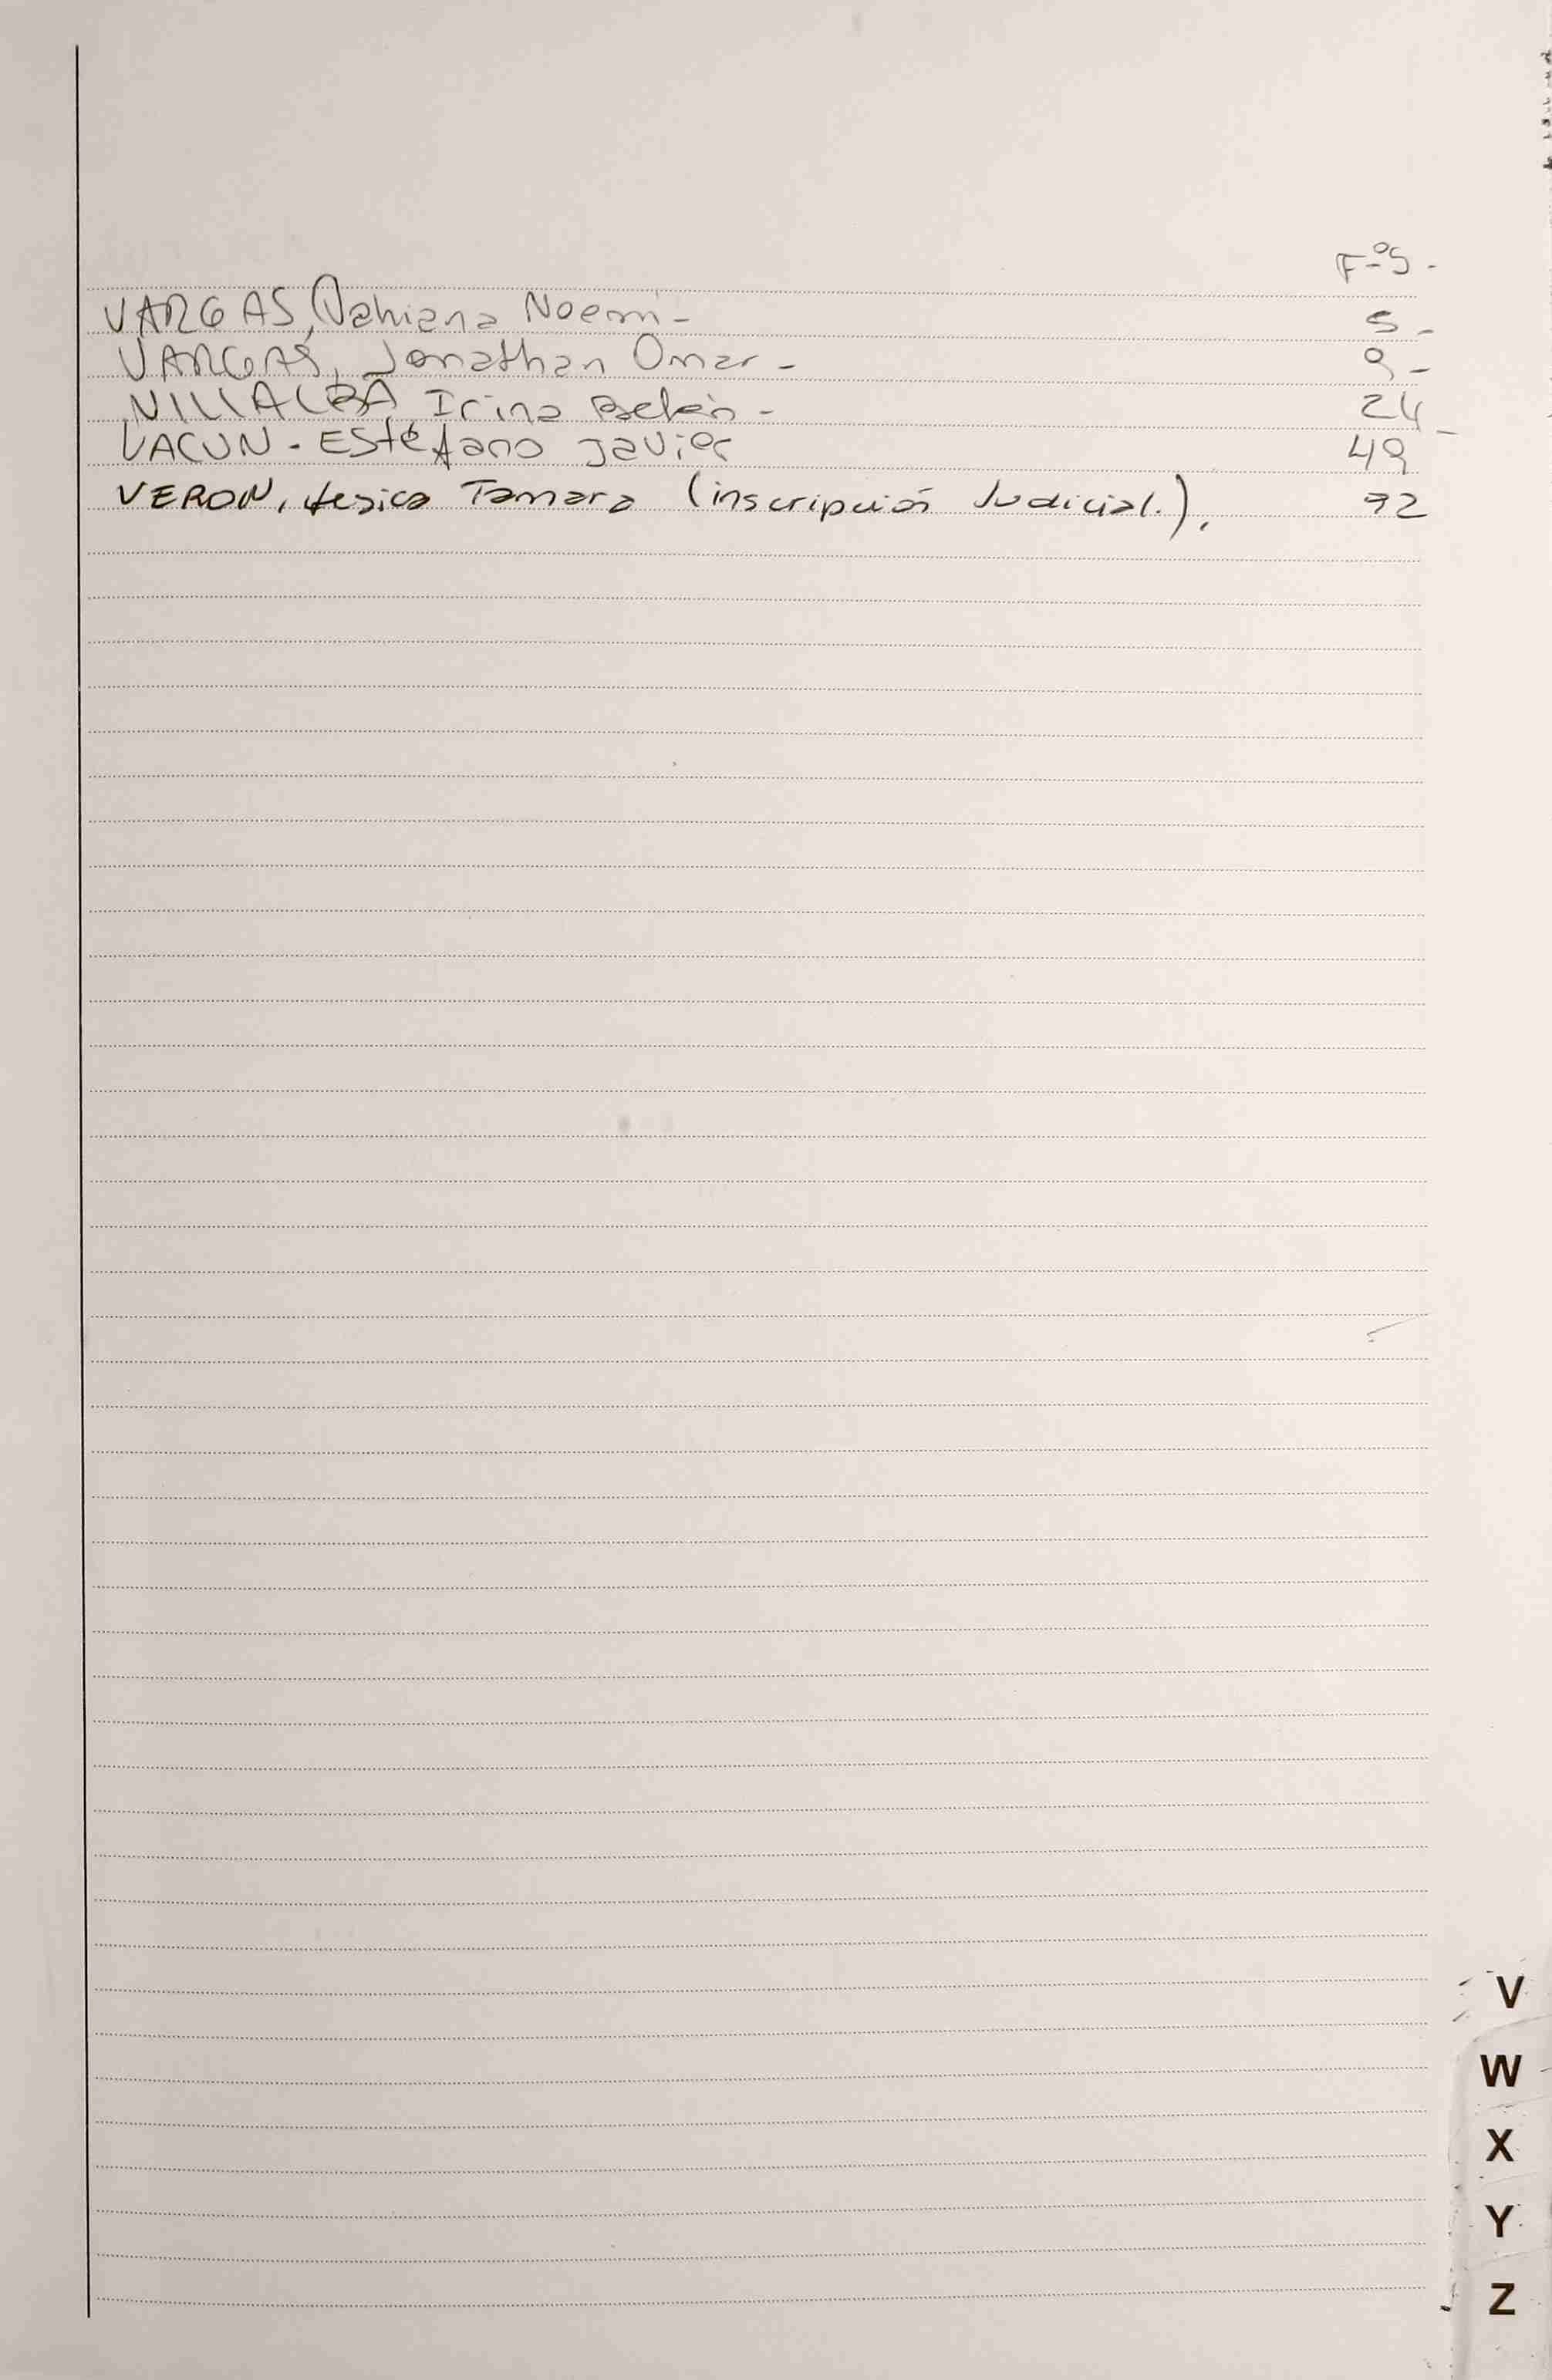 F-ºS-
VARGAS, Nahiana Noemí- 5-
VARGAS, Jonathan Omar- 9-
VILLALBA Irina Belén- 24-
VACUN- Estéfano Javier 49
VERON, Yesica Tamara (inscripción Judicial.). 92
V
W
X
Y
Z